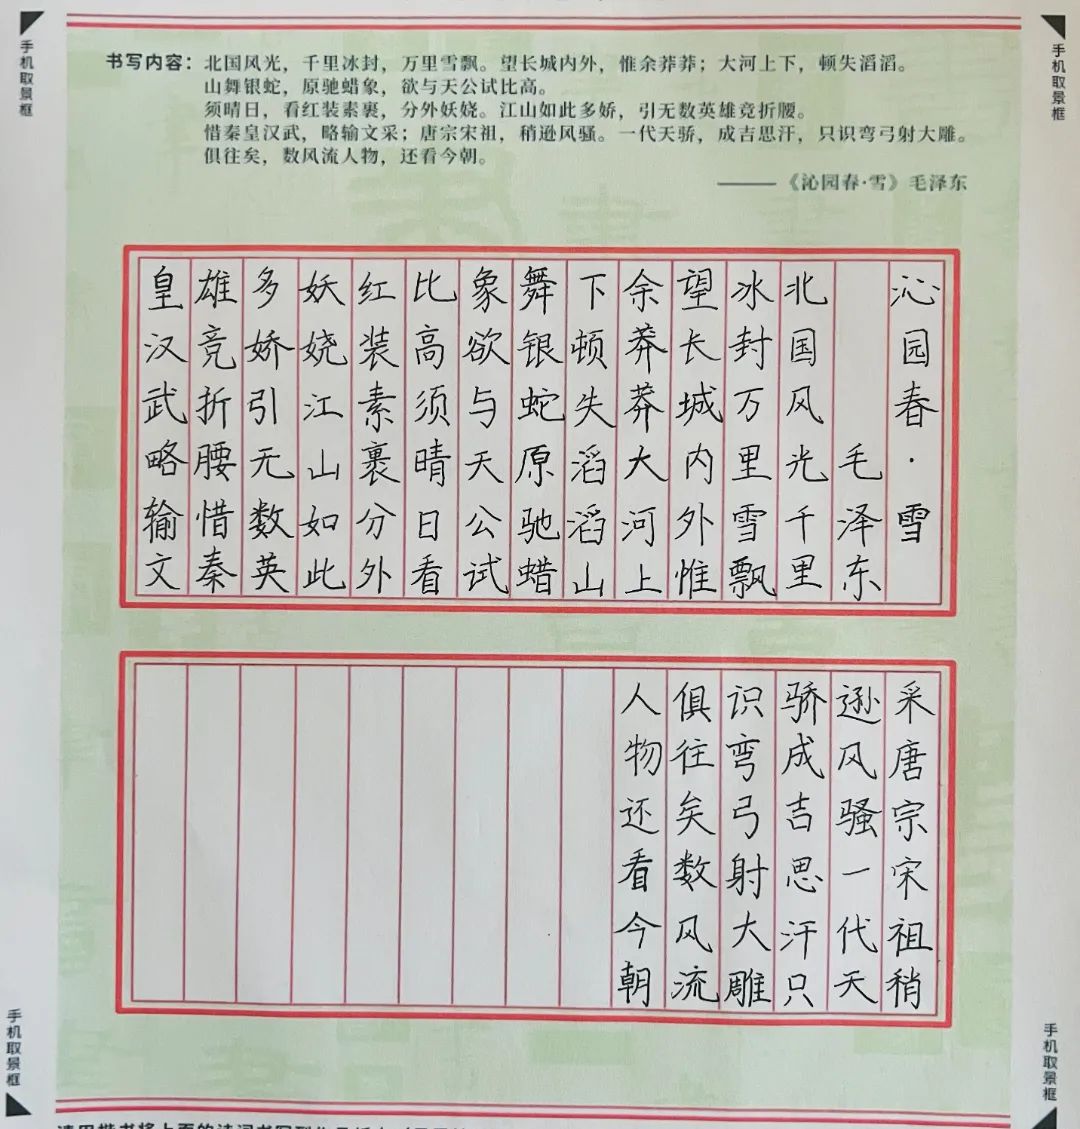 手机取景框
手机取景框
书写内容：北国风光，千里冰封，万里雪飘。望长城内外，惟余莽莽；大河上下，顿失滔滔。
山舞银蛇，原驰蜡象，欲与天公试比高。
须晴日，看红装素裹，分外妖娆。江山如此多娇，引无数英雄竞折腰。
惜秦皇汉武，略输文采；唐宗宋祖，稍逊风骚。一代天骄，成吉思汗，只识弯弓射大雕。
俱往矣，数风流人物，还看今朝。
——《沁园春·雪》毛泽东
沁园春·雪
毛泽东
北国风光千里
冰封万里雪飘
望长城内外惟
余莽莽大河上
下顿失滔滔山
舞银蛇原驰蜡
象欲与天公试
比高须晴日看
红装素裹分外
妖娆江山如此
多娇引无数英
雄竞折腰惜秦
皇汉武略输文
采唐宗宋祖稍
逊风骚一代天
骄成吉思汗只
识弯弓射大雕
俱往矣数风流
人物还看今朝
手机取景框
手机取景框